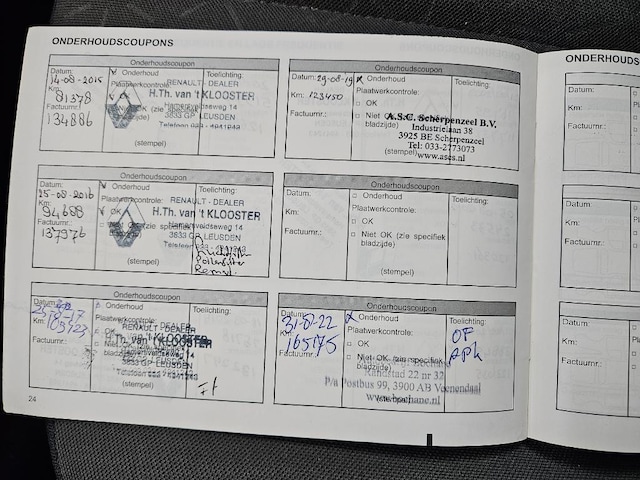 ONDERHOUDSCOUPONS
Onderhoudscoupon
Datum: Onderhoud Toelichting:
14-08-2015
Plaatwerkcontrole:
RENAULT - DEALER
Km:
81378
H.Th. van 't KLOOSTER
Hamersveldseweg 14
Factuurnr.:
3833 GP LEUSDEN
134886
bladzijde)
Telefoon 033 - 4941943
(stempel)
Onderhoudscoupon
Datum: 29-08-19
Onderhoud Toelichting:
Plaatwerkcontrole:
Km: 123450
OK
Factuurnr.:
Niet OK
bladzijde)
A.S.C. Scherpenzeel B.V.
Industrielaan 38
3925 BE Scherpenzeel
Tel: 033-2773073
(stempel)
www.ases.nl
Onderhoudscoupon
Datum: Onderhoud Toelichting:
25-08-2016
Plaatwerkcontrole:
RENAULT - DEALER
Km:
94688
OK
H.Th. van 't KLOOSTER
Hamersveldseweg 14
Factuurnr.:
3833 GP LEUSDEN
137976
Telefoon 033 - 4941943
Pollenfilter
(stempel)
Onderhoudscoupon
Datum: Onderhoud Toelichting:
Plaatwerkcontrole:
Km:
OK
Factuurnr.:
Niet OK (zie specifiek
bladzijde)
(stempel)
Onderhoudscoupon
Datum: Onderhoud Toelichting:
Km:
105923
RENAULT - DEALER
H.Th. van 't KLOOSTER
Factuurnr.:
Hamersveldseweg 14
bladzijde)
3833 GP LEUSDEN
Telefoon 033 - 4941943
(stempel)
Onderhoudscoupon
Datum: Onderhoud Toelichting:
31-01-22
Plaatwerkcontrole:
OF
Km:
165175
OK
APK
Factuurnr.:
Niet OK (zie specifiek
bladzijde)
Randstad 22 nr 32
P/a Postbus 99, 3900 AB Veenendaal
(stempel)
24
ONDERHOUDS
Datum:
Km:
Factuurnr.:
Datum:
Km:
Factuurnr.:
Datum:
Km:
Factuurnr.: